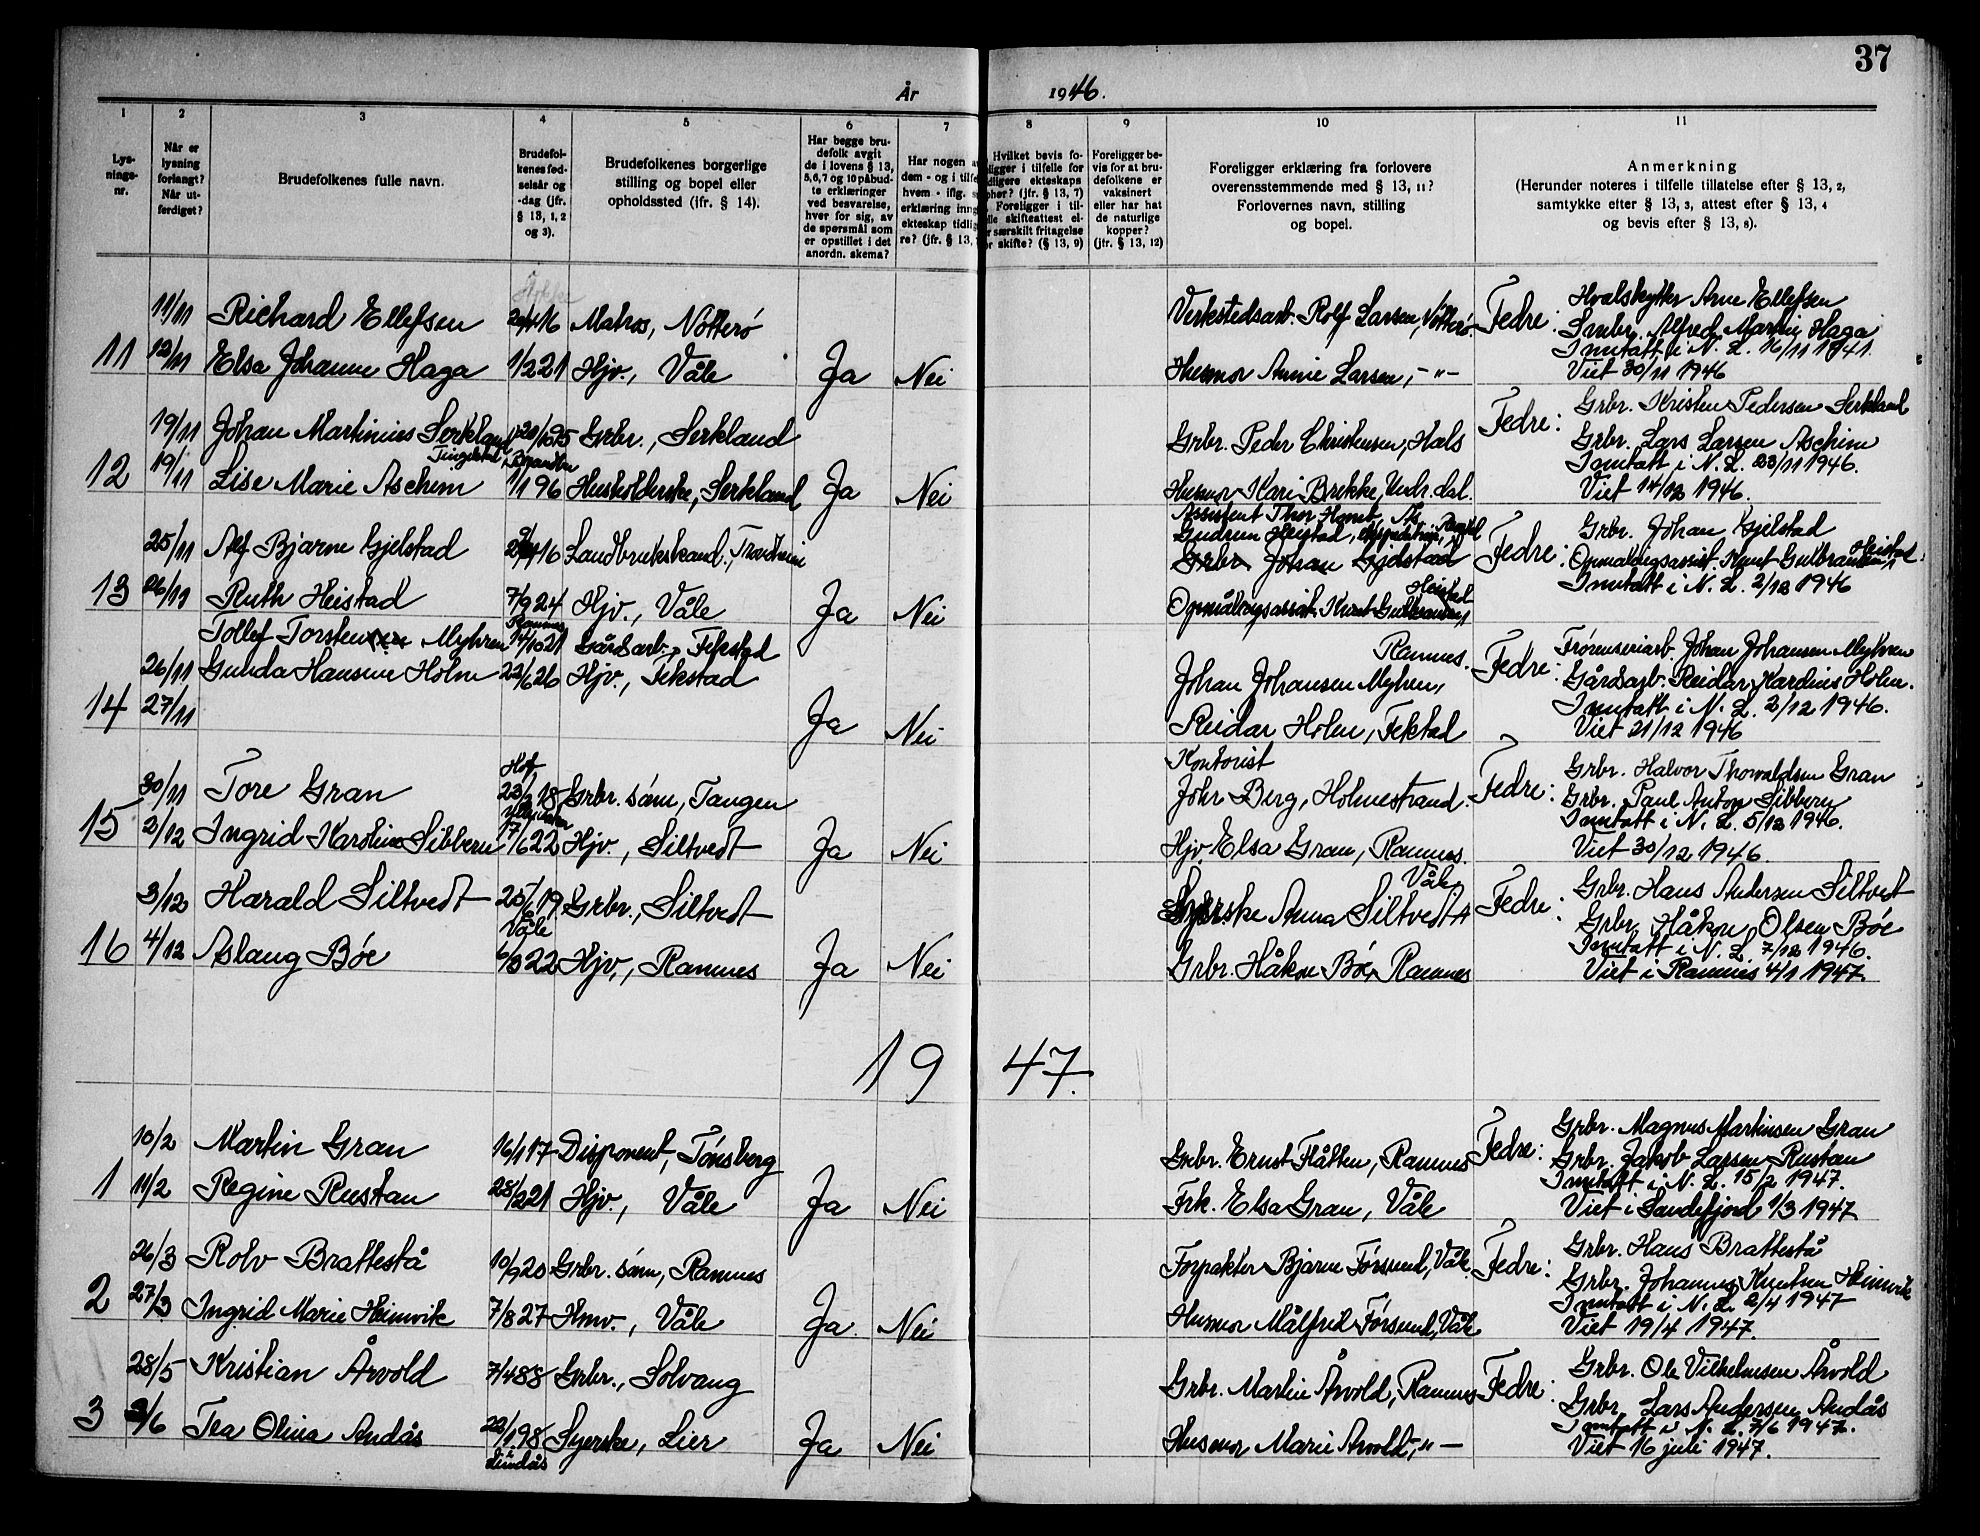 37
År 1946.
1 2 3 4 5 6 7 8 9 10 11
Lys-
nings-
nr.
Når er
lysning
forlangt?
Når ut-
ferdiget?
Brudefolkenes fulle navn.
Brudefol-
kenes fød-
selsår og
-dag (jfr.
§ 13, 1, 2
og 3).
Brudefolkenes borgerlige
stilling og bopel eller
opholdssted (jfr. § 14).
Har begge bru-
defolk avgit
de i lovens § 13,
5, 6, 7 og 10 påbud-
te erklæringer
ved besvarelse,
hver for sig, av
de spørsmål som
er opstillet i det
anordn. skema?
Har nogen a
dem - og i tilfe
hvem - iflg. s
erklæring inng
ekteskap tidlig
re? (jfr. § 13,
Hvilket bevis fo-
ligger i tilfelle for
dligere ekteskaps
pher? (jfr. § 13, 7)
Foreligger i til-
lle skifteattest el-
r særskilt fritagelse
or skifte? (§ 13, 9)
Foreligger be-
vis for at bru-
defolkene er
vaksinert
eller har hat
de naturlige
kopper?
(jfr. § 13, 12)
Foreligger erklæring fra forlovere
overensstemmende med § 13, 11?
Forlovernes navn, stilling
og bopel.
Anmerkning
(Herunder noteres i tilfelle tillatelse efter § 13, 2,
samtykke efter § 13, 3, attest efter § 13, 4
og bevis efter § 13, 8).
11/11 Richard Ellefsen 16 Matros, Nøtterø Verkstedsarb. Rolf Larsen, Nøtterø. Fedre: Hvalskytter Arne Ellefsen
Småbr. Alfred Martin Haga
Inntatt i N. L. 16/11 1941.
11 12/11 Elsa Johanne Haga 1/2 21 Hjv., Våle Ja Nei Husmor Annie Larsen, -"- Viet 30/11 1946
19/11 Johan Martinius Serkland 95 Grbr., Serkland Grbr. Peder Christensen, Hals Fedre: Grbr. Kristen Pedersen Serkland
Tingelstad, Brandbu
Grbr. Lars Larsen Aschim
Inntatt i N. L. 23/11 1946.
12 19/11 Lise Marie Aschem 1/1 96 Husholderske, Serkland Ja Nei Husmor Kari Brekke, Undr.dal. Viet 14/12 1946.
Assistent Thor
25/11 Alf Bjarne Gjelstad 16 Landbrukskand., Trondheim Gudrun Heistad, Fedre: Grbr. Johan Gjelstad
Grbr. Johan Gjelstad
Opmålingsassist. Knut Gulbrandsen Heistad
Inntatt i N. L. 2/12 1946
13 26/11 Ruth Heistad 7/9 24 Hjv., Våle Ja Nei Opmålingsassist. Knut Gulbrandsen Heistad
Ramnes
Tollef Torstensen Myhren 14/10 21 Gårdsarb., Fekstad Johan Johansen Myhren, Ramnes. Fedre: Johan Johansen Myhren
26/11 Gunda Hansine Holm 22/6 26 Hjv., Fekstad Gårdsarb. Reidar Kardius Holm.
Inntatt i N. L. 2/12 1946.
14 27/11 Ja Nei Reidar Holm, Fekstad Viet 21/12 1946
Hof Kontorist
30/11 Tore Gran 18 Grbr. sønn, Tangen Johr Berg, Holmestrand. Fedre: Grbr. Halvor Thorvaldsen Gran
Grbr. Paul Anton Sibbern
Inntatt i N. L. 5/12 1946.
15 2/12 Ingrid Karoline Sibbern 17/6 22 Hjv., Siltvedt Ja Nei Hjv. Elsa Gran, Ramnes. Viet 30/12 1946.
3/12 Harald Siltvedt 19 Grbr., Siltvedt Syerske Anna Siltvedt, Våle Fedre: Grbr. Hans Andersen Siltvedt
Våle
Grbr. Håkon Olsen Bøe
Inntatt i N. L. 7/12 1946.
16 4/12 Aslaug Bøe 6/3 22 Hjv., Ramnes Ja Nei Grbr. Håkon Bø, Ramnes Viet i Ramnes 4/1 1947.
1947.
10/2 Martin Gran 16/1 17 Disponent, Tønsberg Grbr. Ernst Flåtten, Ramnes Fedre: Grbr. Magnus Martinsen Gran
Grbr. Jakob Larsen Rustan
Inntatt i N. L. 15/2 1947.
1 11/2 Regine Rustan 28/2 21 Hjv., Våle Ja Nei Frk. Elsa Gran, Våle Viet i Sandefjord 1/3 1947
26/3 Rolv Brattestå 10/9 20 Grbr. sønn, Ramnes Forpakter Bjarne Førsund, Våle. Fedre: Grbr. Hans Brattestå
Grbr. Johannes Knutsen Heimvik
Inntatt i N. L. 2/4 1947
2 27/3 Ingrid Marie Heimvik 7/8 27 Hmv., Våle Ja Nei Husmor Målfrid Førsund, Våle Viet 19/4 1947.
28/5 Kristian Årvold 7/4 88 Grbr., Solvang Grbr. Martin Årvold, Ramnes Fedre: Grbr. Ole Vilhelmsen Årvold
Grbr. Lars Andersen Andås
Inntatt i N. L. 7/6 1947.
3 3/6 Tea Olina Andås 98 Syerske, Lier Ja Nei Husmor Marie Årvold, "- Viet 16 juli 1947.